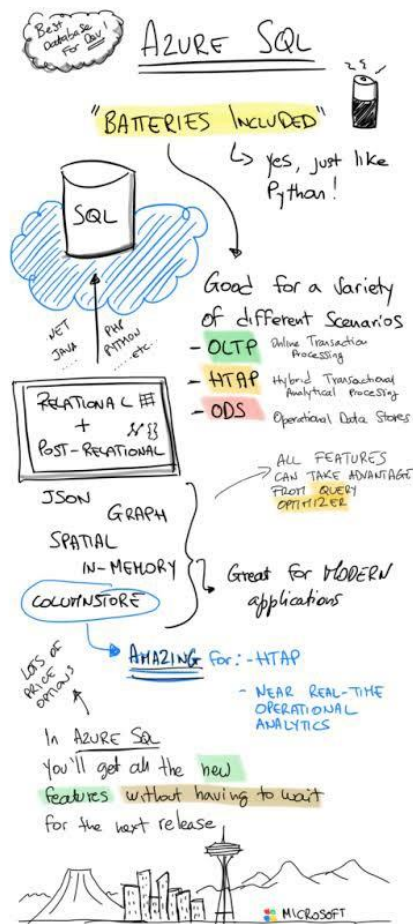 Best
Database
For Dev!
AZURE SQL
"BATTERIES INCLUDED"
yes, just like
Python!
SQL
.NET
JAVA
.....
PHP
PYTHON
...etc..
Good for a variety
of different Scenarios
- OLTP Online Transaction Processing
- HTAP Hybrid Transactional Analytical Processing
- ODS Operational Data Stores
RELATIONAL
+
POST-RELATIONAL
{}
ALL FEATURES
CAN TAKE ADVANTAGE
FROM QUERY
OPTIMIZER
JSON
GRAPH
SPATIAL
IN-MEMORY
COLUMNSTORE
Great for MODERN
applications
AMAZING For: - HTAP
- NEAR REAL-TIME
OPERATIONAL
ANALYTICS
LOTS OF
PRICE
OPTIONS
In AZURE SQL
You'll get all the new
features without having to wait
for the next release
MICROSOFT